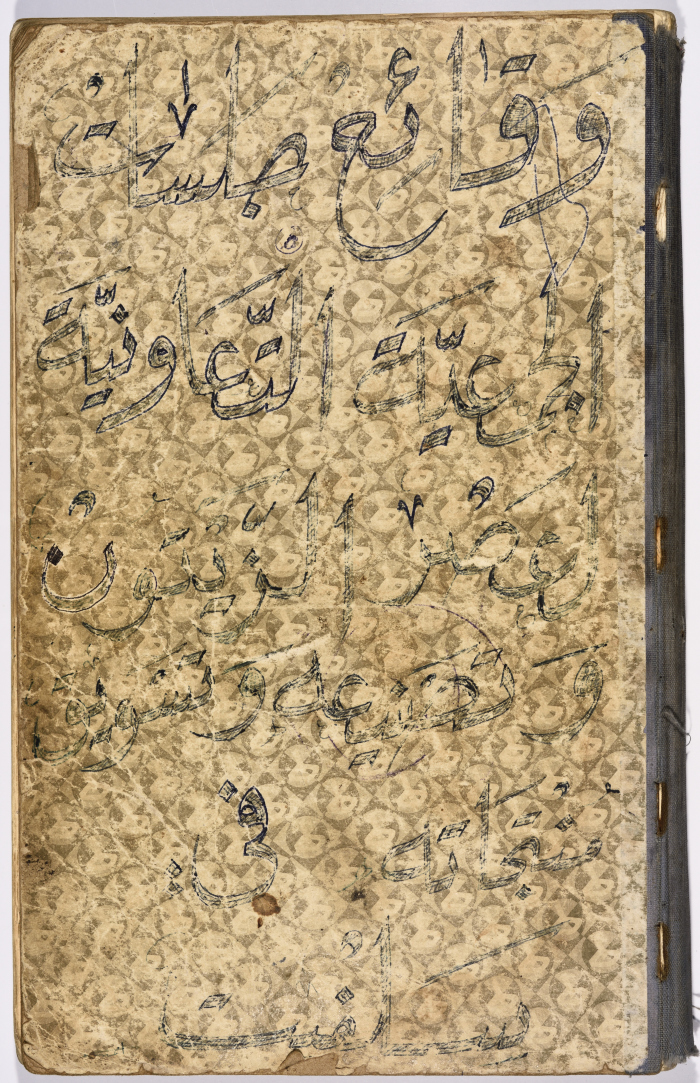 وَقَائِع جلسَات
الجمعيّة التّعاونيّة
لعَصْر الزّيتون
وَتصنيعه وَتسويق
منتجاته في
سلفيت